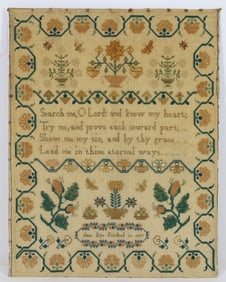 Search me, O Lord: and know my heart;
Try me, and prove each inward part;
Show me my sin, and by thy grace
Lead me in thine eternal ways.
finished